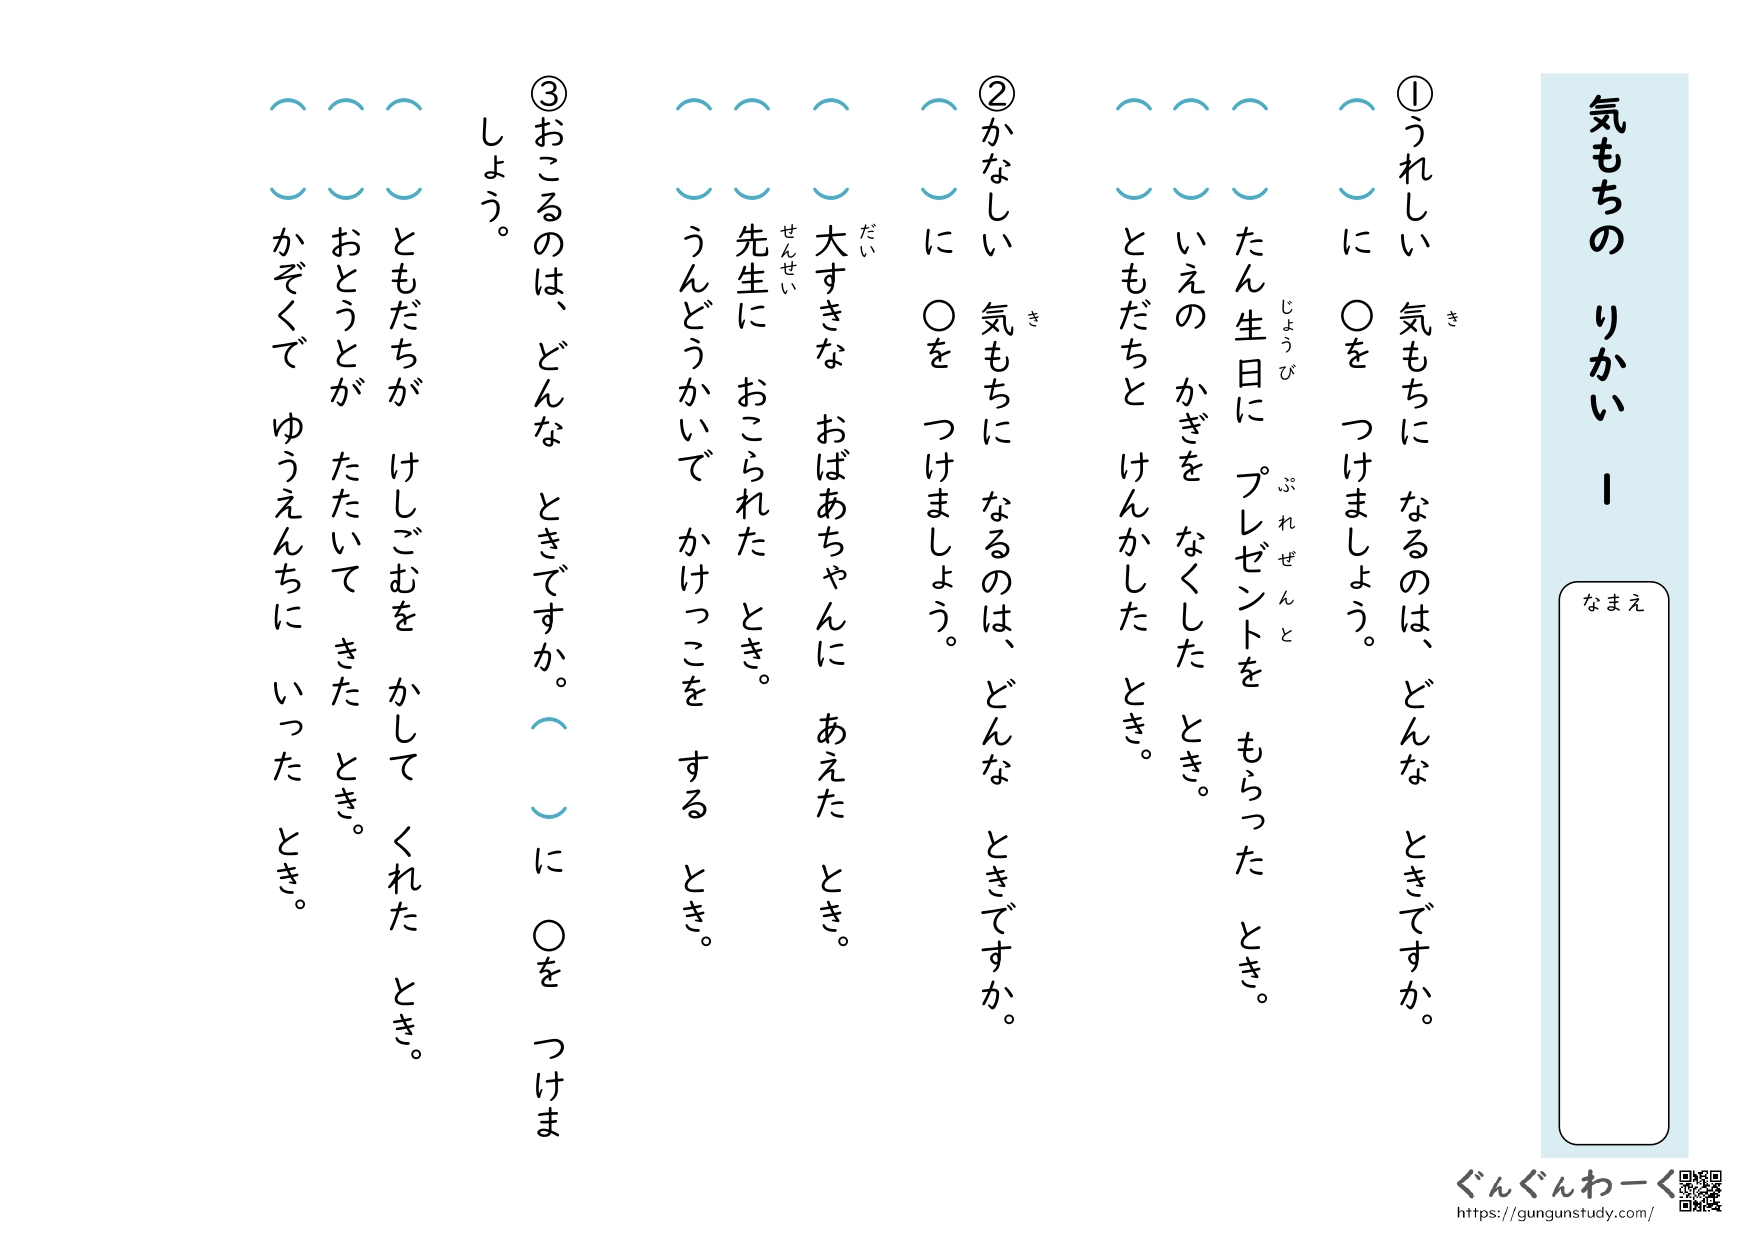 気もちの　りかい　1
なまえ
①うれしい　気もちに　なるのは、どんな　ときですか。
き
（　　）に　〇を　つけましょう。
（　　）たん生日に　プレゼントを　もらった　とき。
じょうび　ぷれぜんと
（　　）いえの　かぎを　なくした　とき。
（　　）ともだちと　けんかした　とき。
②かなしい　気もちに　なるのは、どんな　ときですか。
き
（　　）に　〇を　つけましょう。
（　　）大すきな　おばあちゃんに　あえた　とき。
だい
（　　）先生に　おこられた　とき。
せんせい
（　　）うんどうかいで　かけっこを　する　とき。
③おこるのは、どんな　ときですか。（　　）に　〇を　つけま
しょう。
（　　）ともだちが　けしごむを　かして　くれた　とき。
（　　）おとうとが　たたいて　きた　とき。
（　　）かぞくで　ゆうえんちに　いった　とき。
ぐんぐんわーく
https://gungunstudy.com/